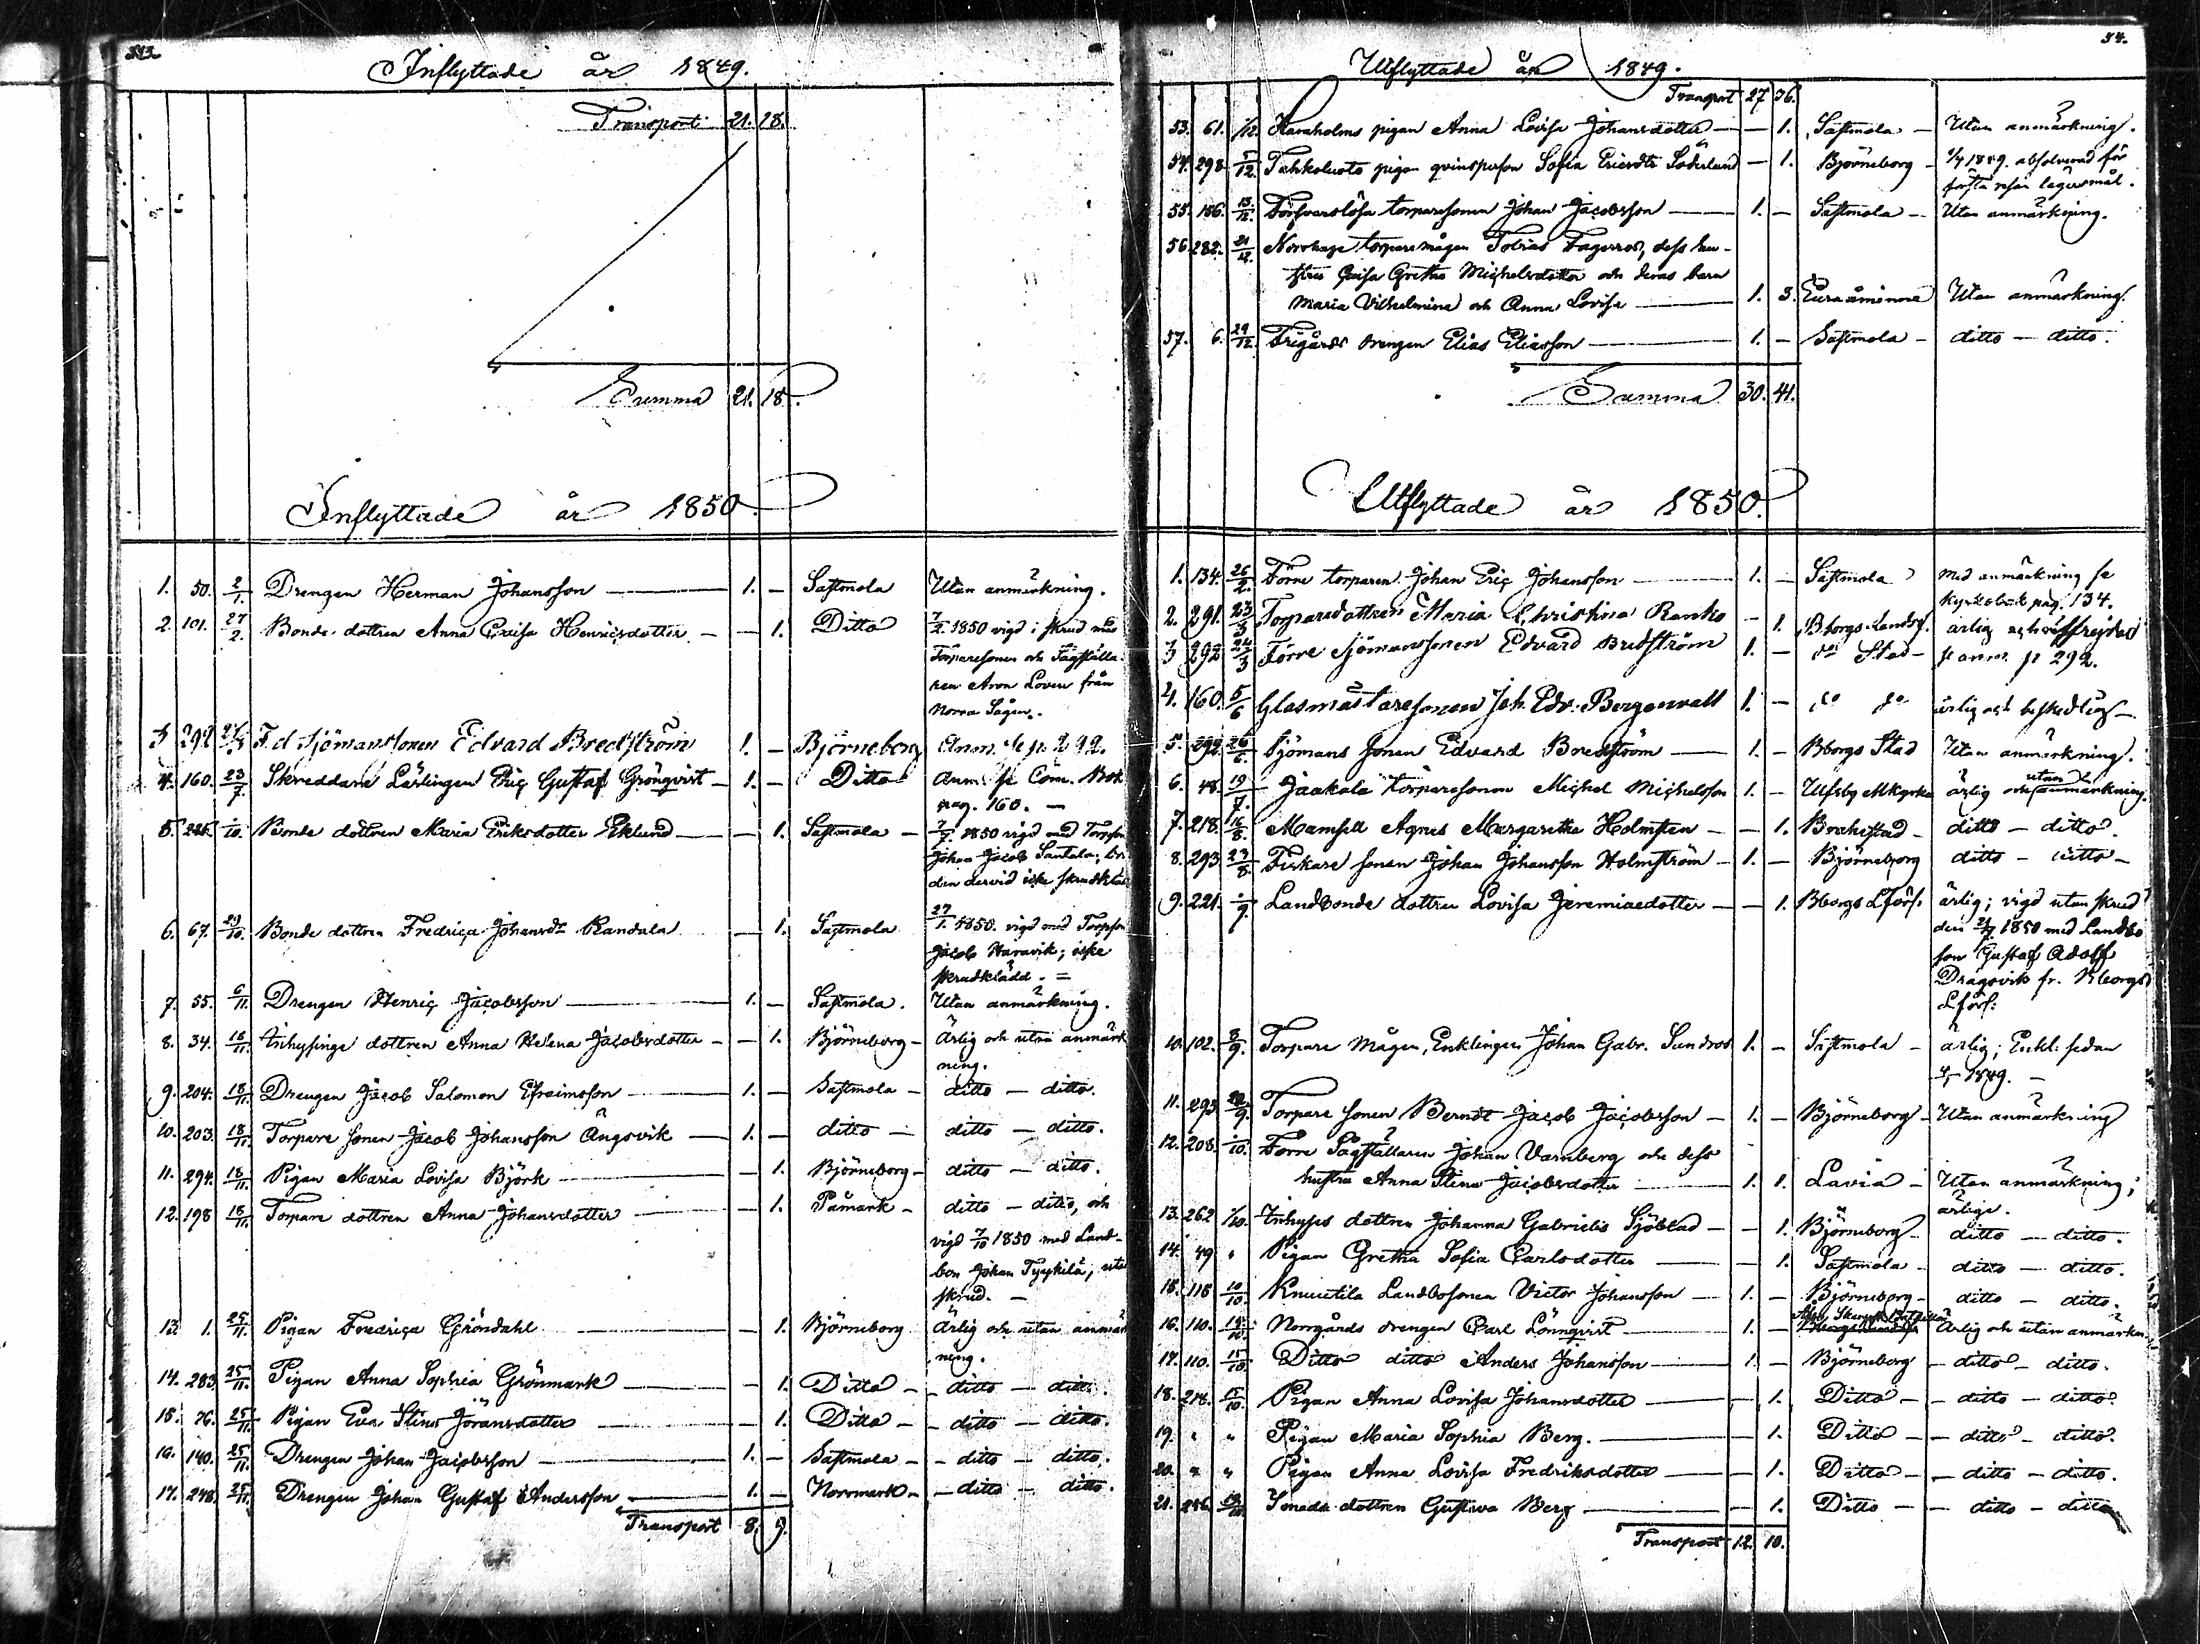 Inflyttade år 1849.
Transport 21. 18.
Summa 21. 18.
Inflyttade år 1850
1. 50. 2/1. Drengen Herman Johansson — 1. — Sastmola Utan anmärkning.
2. 101. 27/2. Bonde dottren Anna Caisa Henricsdotter — — 1. Ditto 7/2. 1850 vigd i skrud med
Torparesonen och Sågställa-
ren Aron Loven från
Norra Sågen.
3 292 F.d Sjömanssonen Edvard Bredström 1. — Björneborg Anm. se p. 292.
4. 160. 23/7. Skreddare Lärlingen Eric Gustaf Grönqvist — 1. — Ditto Anm. se Com. Bok
pag. 160. —
5. Bonde dottren Maria Eriksdotter Eklund — — 1. Sastmola — 1850 vigd med Torpson
Johan Jacob Santala; bru
den dervid icke skrudkläd
6. 67. 29/10. Bonde dottren Fredrica Johansdr Randala — 1. Sastmola 27/1. 1850. vigd med Torpson
Jacob Haravik; icke
skrudklädd. =
7. 55. 6/11. Drengen Henric Jacobsson — 1. — Sastmola. Utan anmärkning.
8. 34. 18/11. Inhysings dottren Anna Helena Jacobsdotter — — 1. Björneborg — Ärlig och utan anmärk
ning.
9. 204. 18/11. Drengen Jacob Salomon Efraimsson — 1. — Sastmola — ditto — ditto.
10. 203. 18/11. Torpare sonen Jacob Johansson Ängsvik — 1. — ditto — ditto — ditto.
11. 294. 18/11. Pigan Maria Lovisa Björk — — 1. Björneborg — ditto — ditto.
12. 198 18/11. Torpare dottren Anna Johansdotter — — 1. Påmark — ditto — ditto, och
vigd 7/10 1850 med Land-
bon Johan Tyykilä; utan
skrud. —
13. 1. 25/11. Pigan Fredrica Gröndahl — — 1. Björneborg Ärlig och utan anmärk
ning.
14. 283. 25/11. Pigan Anna Sophia Grönmark — — 1. Ditto — ditto — ditto.
15. 76. 25/11. Pigan Eva Stina Göransdotter — — 1. Ditto — ditto — ditto.
16. 140. 25/11. Drengen Johan Jacobsson — 1. — Sastmola — ditto — ditto.
17. 248. 25/11. Drengen Johan Gustaf Andersson — 1. — Norrmark — ditto — ditto.
Transport 8. 9.
54.
Utflyttade år 1849.
Transport 27 36.
53. 61. /12. Hamnholms pigan Anna Lovisa Johansdotter — — 1. Sastmola — Utan anmärkning.
54. 298. 5/12. Tahkoluoto pigan qvinsperson Sofia Ericsdtr Söderlund — 1. Björneborg — 1/4 1849. absolverad för
första resan lägersmål.
55. 156. 13/12. Försvarslösa torparesonen Johan Jacobsson — 1. — Sastmola — Utan anmärkning.
56. 282. 21/12. Norrhage torparemågen Tobias Fagerros, dess hu-
stru Caisa Gretha Michelsdotter och deras barn
Maria Vilhelmina och Anna Lovisa — 1. 3. Euraåminne Utan anmärkning.
57. 6. 29/12. Frigårds drengen Elias Eliasson — 1. — Sastmola — ditto — ditto.
Summa 30. 41.
Utflyttade år 1850.
1. 134. 26/2. Förre torparen Johan Eric Johansson — 1. — Sastmola Med anmärkning se
Kyrkobok pag. 134.
2. 291. 23/3 Torparedottren Maria Christina Ranko — 1. Bborgs Landsf. ärlig och välfrejdad
3 292 24/3 Förre Sjömanssonen Edvard Bredström 1. — do Stad — se anm. p 292.
4. 160. 5/6 Glasmästaresonen Joh. Edv. Bergenvall 1. — do do ärlig och beskedlig —
5. 292. 26/6 Sjömans sonen Edvard Bredström — 1. — Bborgs Stad Utan anmärkning.
6. 48. 19/7. Jaakala torparesonen Michel Michelsson 1. — Ulfsby Mkyrka ärlig och utan anmärkning.
7. 218. 16/8. Mamsell Agnes Margaretha Holmsten — — 1. Brahestad — ditto — ditto.
8. 293 23/8 Fiskare sonen Johan Johansson Holmström — 1. — Björneborg ditto — ditto —
9. 221. /9. Landbonde dottren Lovisa Jeremiaedotter — — 1. Bborgs Lförs. ärlig; vigd utan skrud
den 1850 med Landbo
son Gustaf Adolf
Dragsvik fr. Bborgs
Lförs:
10. 102. 8/9. Torpare Mågen, Enklingen Johan Gabr. Sundros 1. — Sastmola — ärlig; Enkl. sedan
1849. —
11. 293 22/9. Torpare sonen Berndt Jacob Jacobsson — 1. — Björneborg — Utan anmärkning
12. 208. /10. Förre Sågställaren Johan Varnberg och dess
hustru Anna Stina Jacobsdotter — 1. 1. Lavia — Utan anmärkning;
ärliga.
13. 262 1/10. Inhyses dottren Johanna Gabrielis Sjöblad — — 1. Björneborg — ditto — ditto.
14. 49 " Pigan Gretha Sofia Carlsdotter — 1. Sastmola — ditto — ditto.
15. 118 10/10. Knuutila Landbosonen Victor Johansson — 1. — Björneborg — ditto — ditto.
16. 110. Norrgårds drengen Carl Lönnqvist — 1. — Ärlig och utan anmärkn.
17. 110. 15/10. Ditto ditto Anders Johansson — 1. — Björneborg — ditto — ditto.
18. 218. 15/10. Pigan Anna Lovisa Johansdotter — — 1. Ditto — ditto — ditto.
19. " " Pigan Maria Sophia Berg. — — 1. Ditto — ditto — ditto.
20. " " Pigan Anna Lovisa Fredriksdotter — — 1. Ditto — ditto — ditto.
21. 286. Smeds dottren Gustava Berg — — 1. Ditto — ditto — ditto
Transport 12. 10.